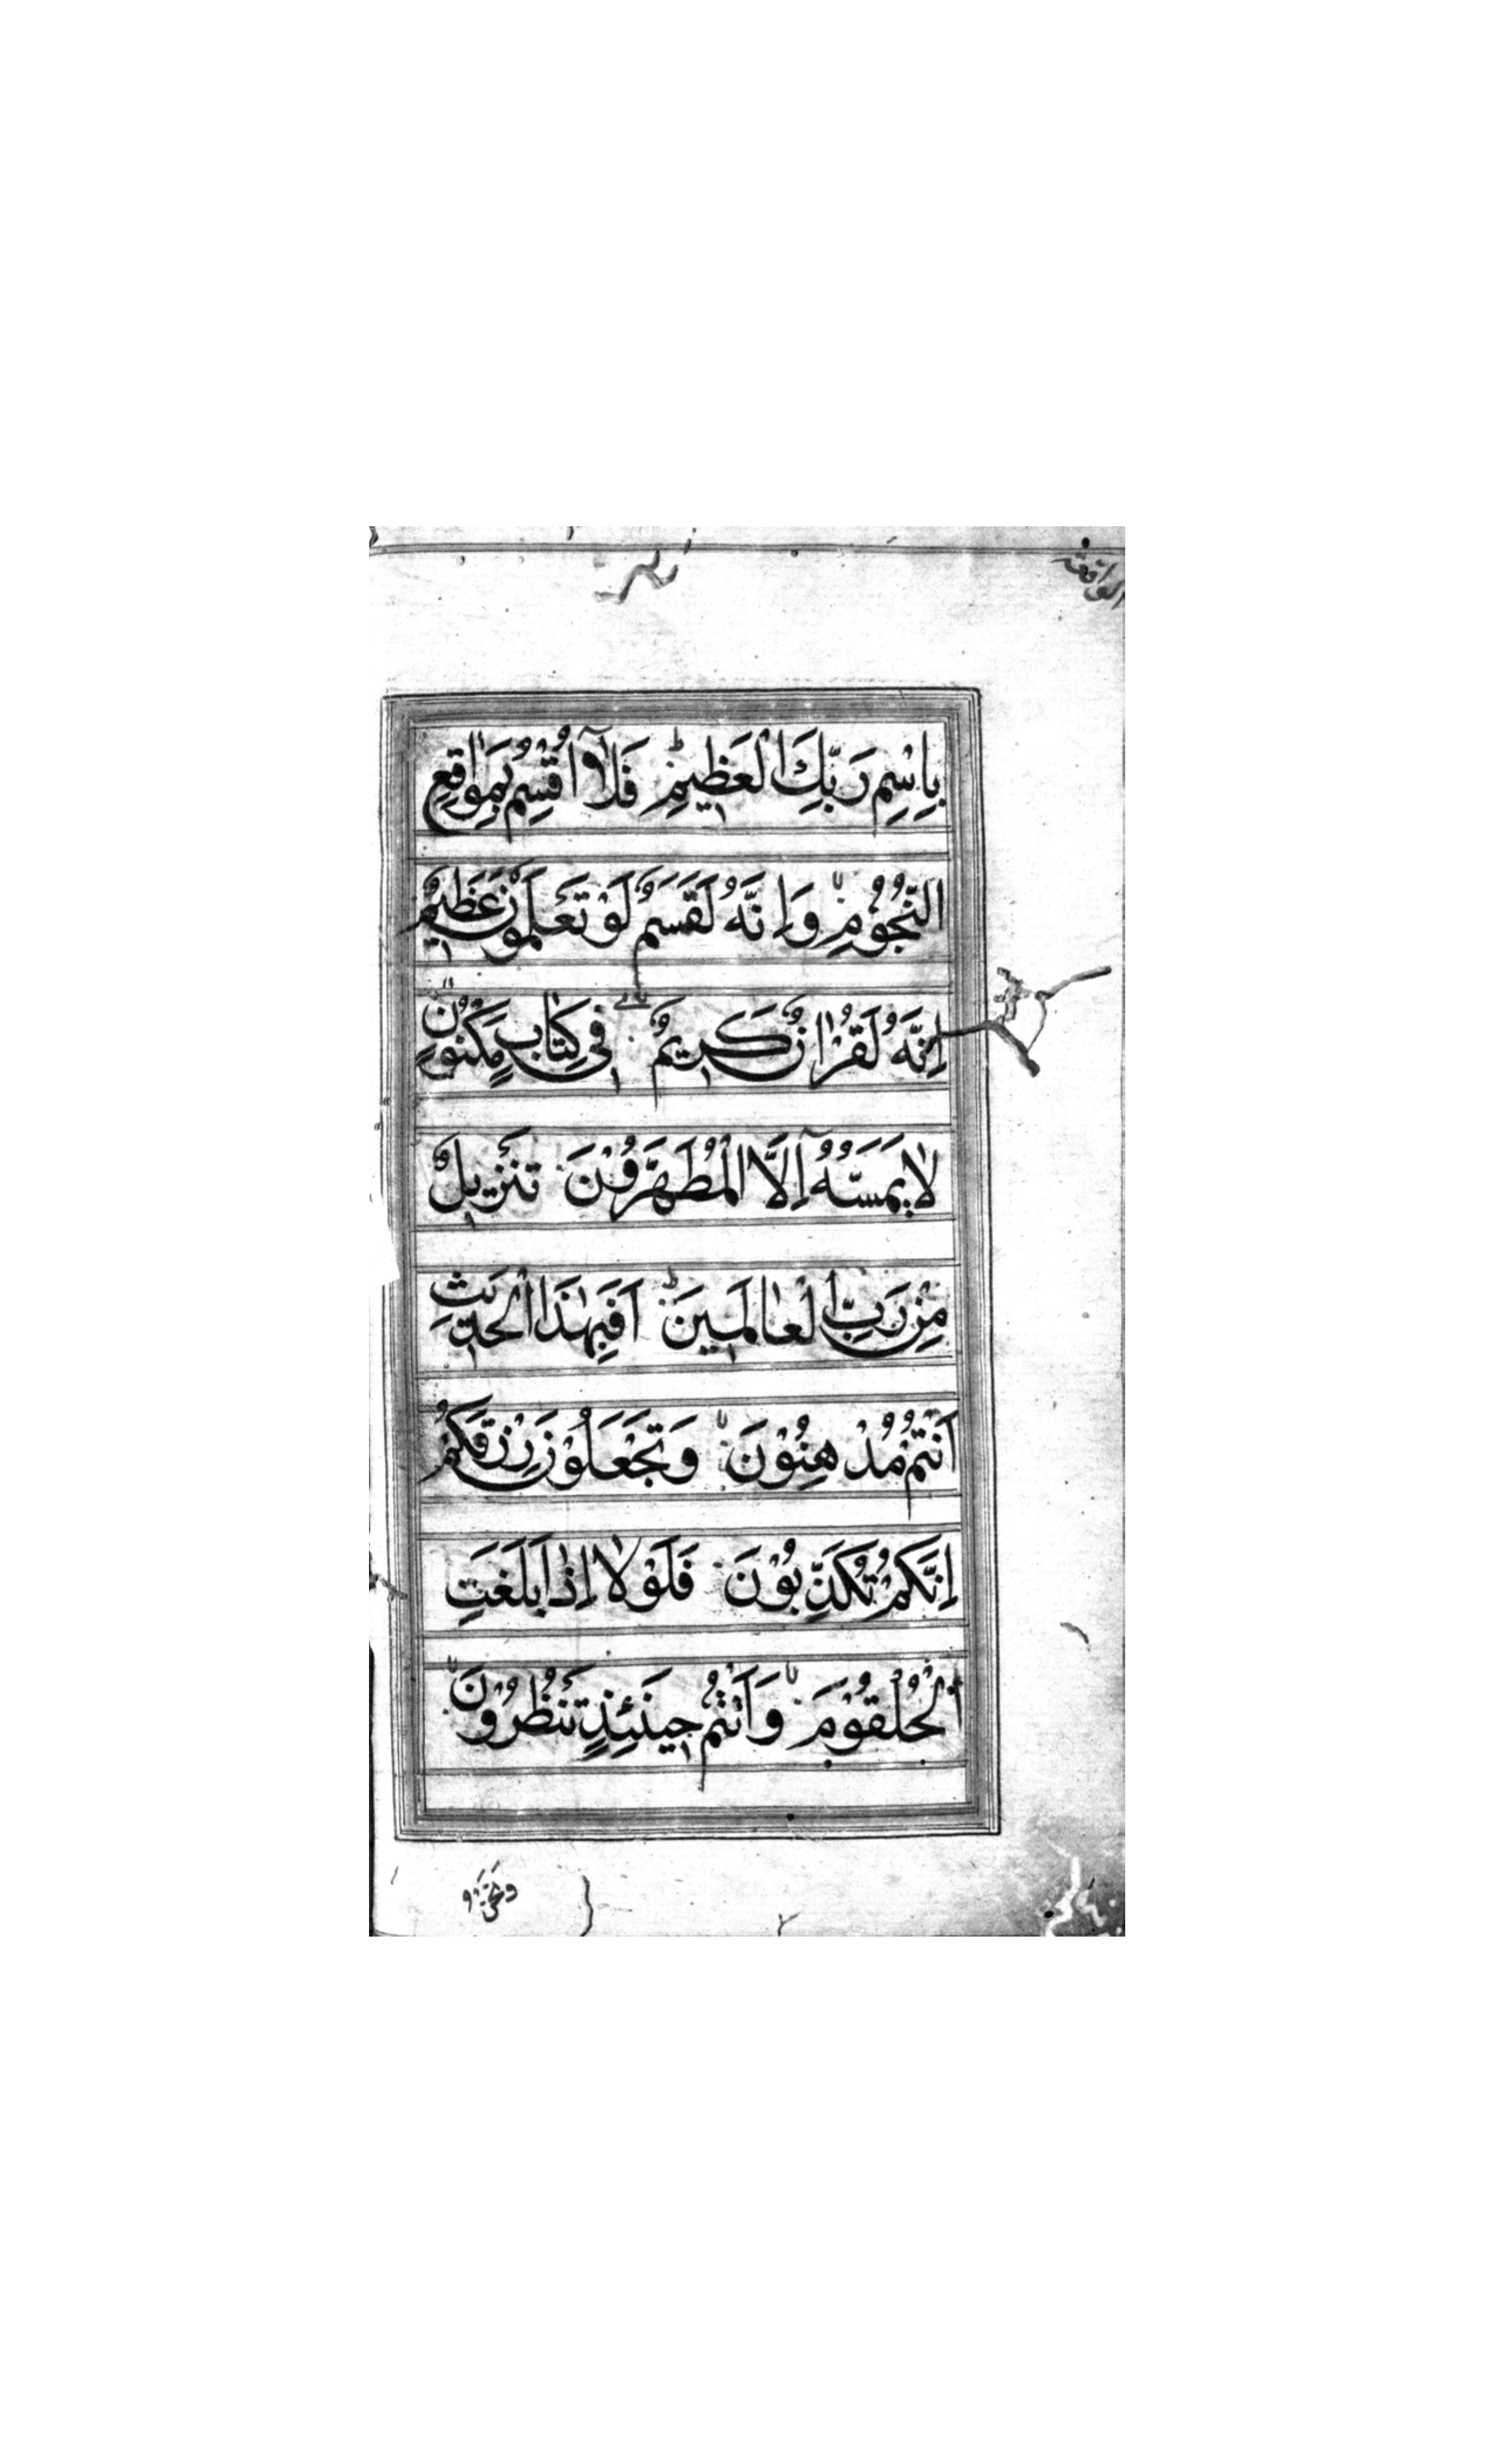 الواقعة
بِاِسْمِ رَبِّكَ الْعَظِیْمِ فَلَآ اُقْسِمُ بِمَوٰقِعِ
النُّجُوْمِ وَاِنَّهُ لَقَسَمٌ لَوْ تَعْلَمُوْنَ عَظِیْمٌ
اِنَّهُ لَقُرْاٰنٌ كَرِیْمٌ فِی كِتَابٍ مَكْنُوْنٍ
لَا یَمَسُّهُ اِلَّا الْمُطَهَّرُوْنَ تَنْزِیْلٌ
مِنْ رَبِّ الْعٰالَمِیْنَ اَفَبِهٰذَا الْحَدِیْثِ
اَنْتُمْ مُدْهِنُوْنَ وَتَجْعَلُوْنَ رِزْقَكُمْ
اِنَّكُمْ تُكَذِّبُوْنَ فَلَوْلَا اِذَا بَلَغَتِ
الْحُلْقُوْمَ وَاَنْتُمْ حِیْنَئِذٍ تَنْظُرُوْنَ
وَنَحْنُ